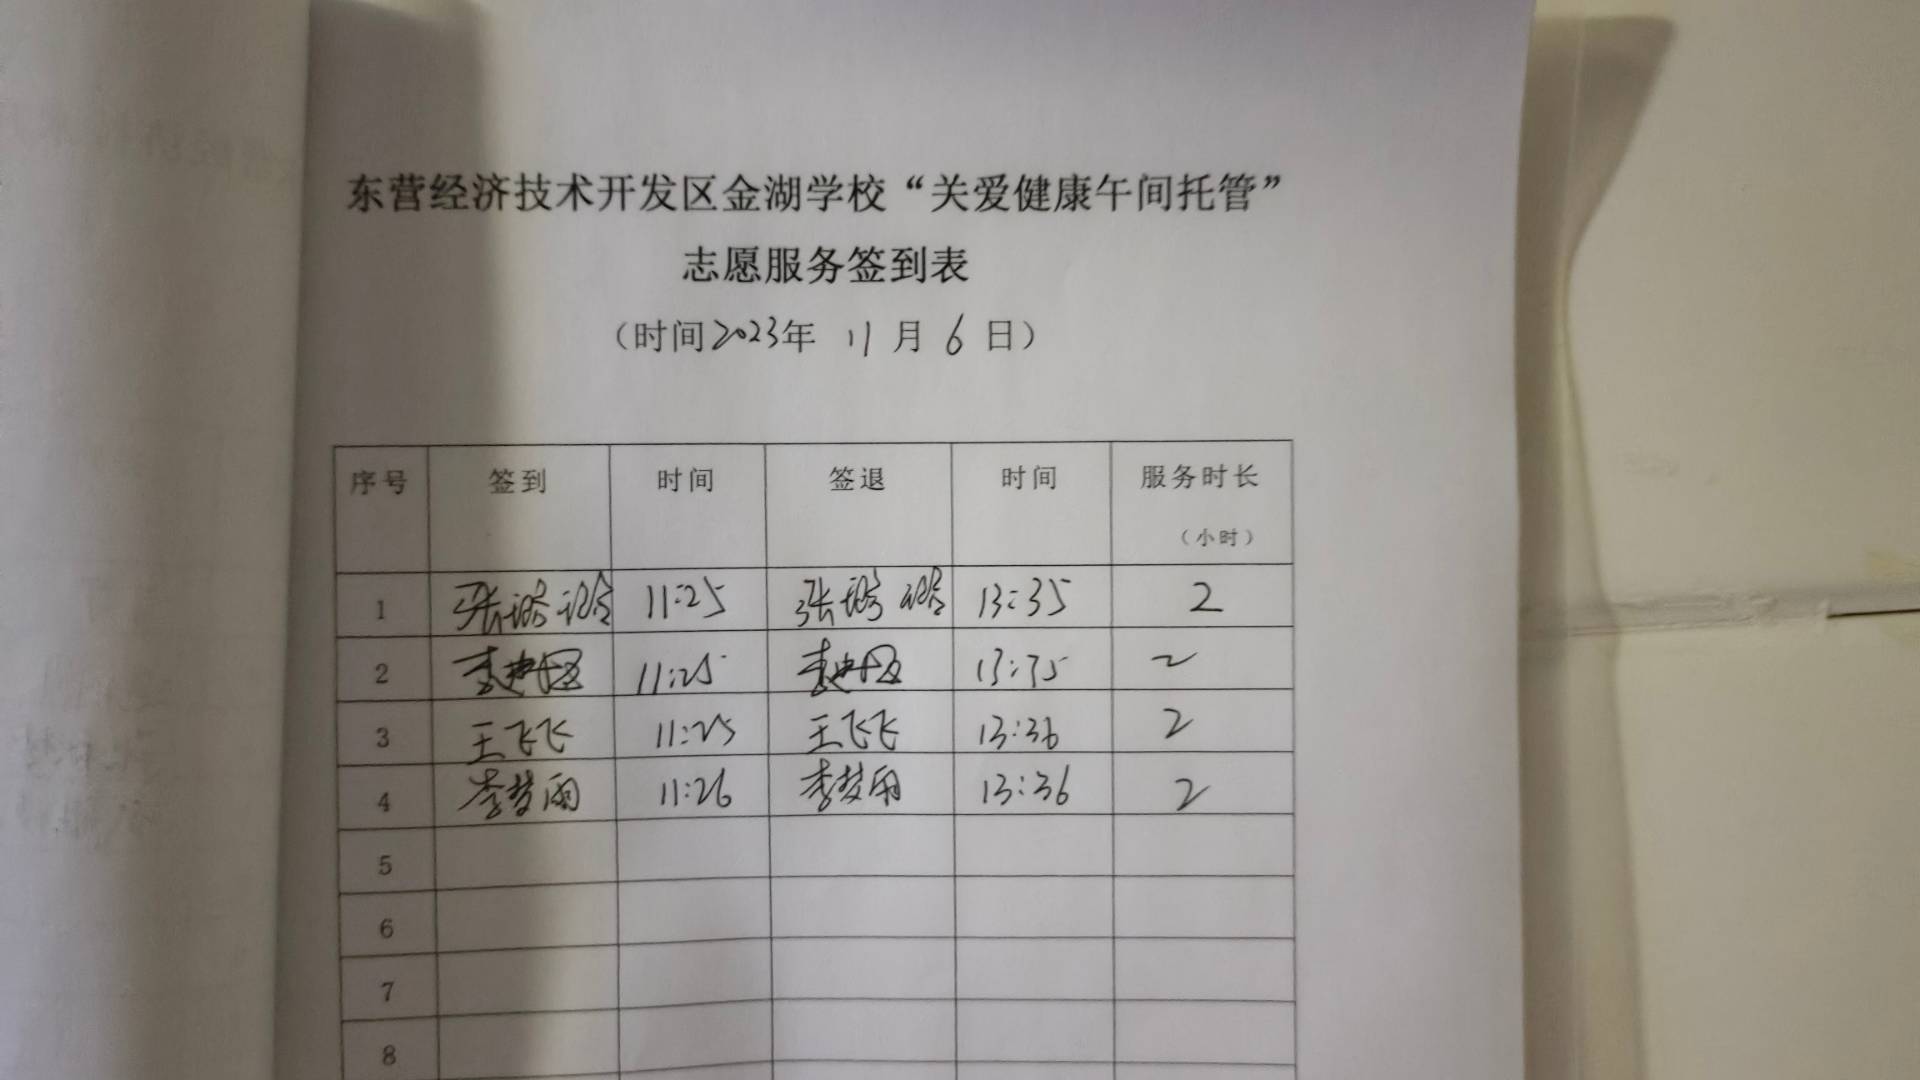 东营经济技术开发区金湖学校“关爱健康午间托管”
志愿服务签到表
（时间2023年 11月 6日）
序号 签到 时间 签退 时间 服务时长
（小时）
1 张 11:25 张 13:35 2
2 李 11:25 李 13:35 2
3 王飞飞 11:25 王飞飞 13:36 2
4 李梦雨 11:26 李梦雨 13:36 2
5
6
7
8